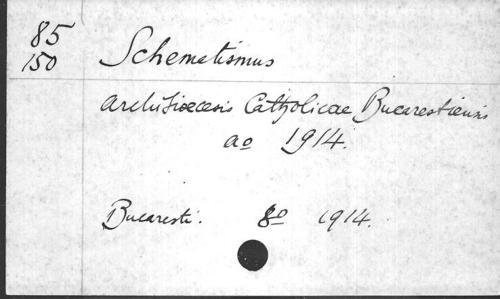 85
150
Schematismus
Archidioecesis Catholicae Bucarestiensis
ao 1914.
Bucaresti. 8o 1914.